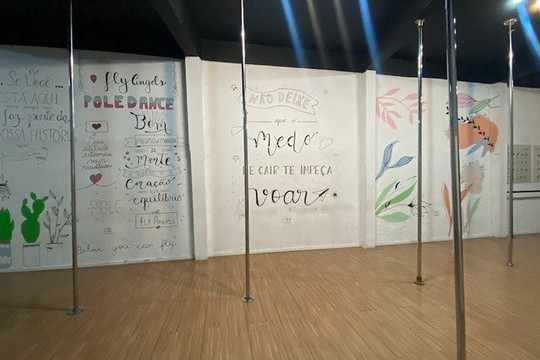 Se Você...
STÁ AQUI
faz parte da
OSSA HISTÓRI
fly Angels
POLE DANCE
Bem
a Mente
Coração
equilíbrio
fly Angels
Belive you can fly
NÃO DEIXE
que o
Medo
DE CAIR TE IMPEÇA
Voar